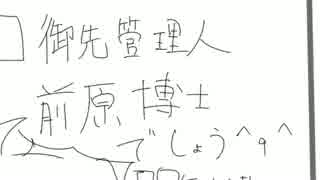 御先管理人
前原博士
でしょう^q^